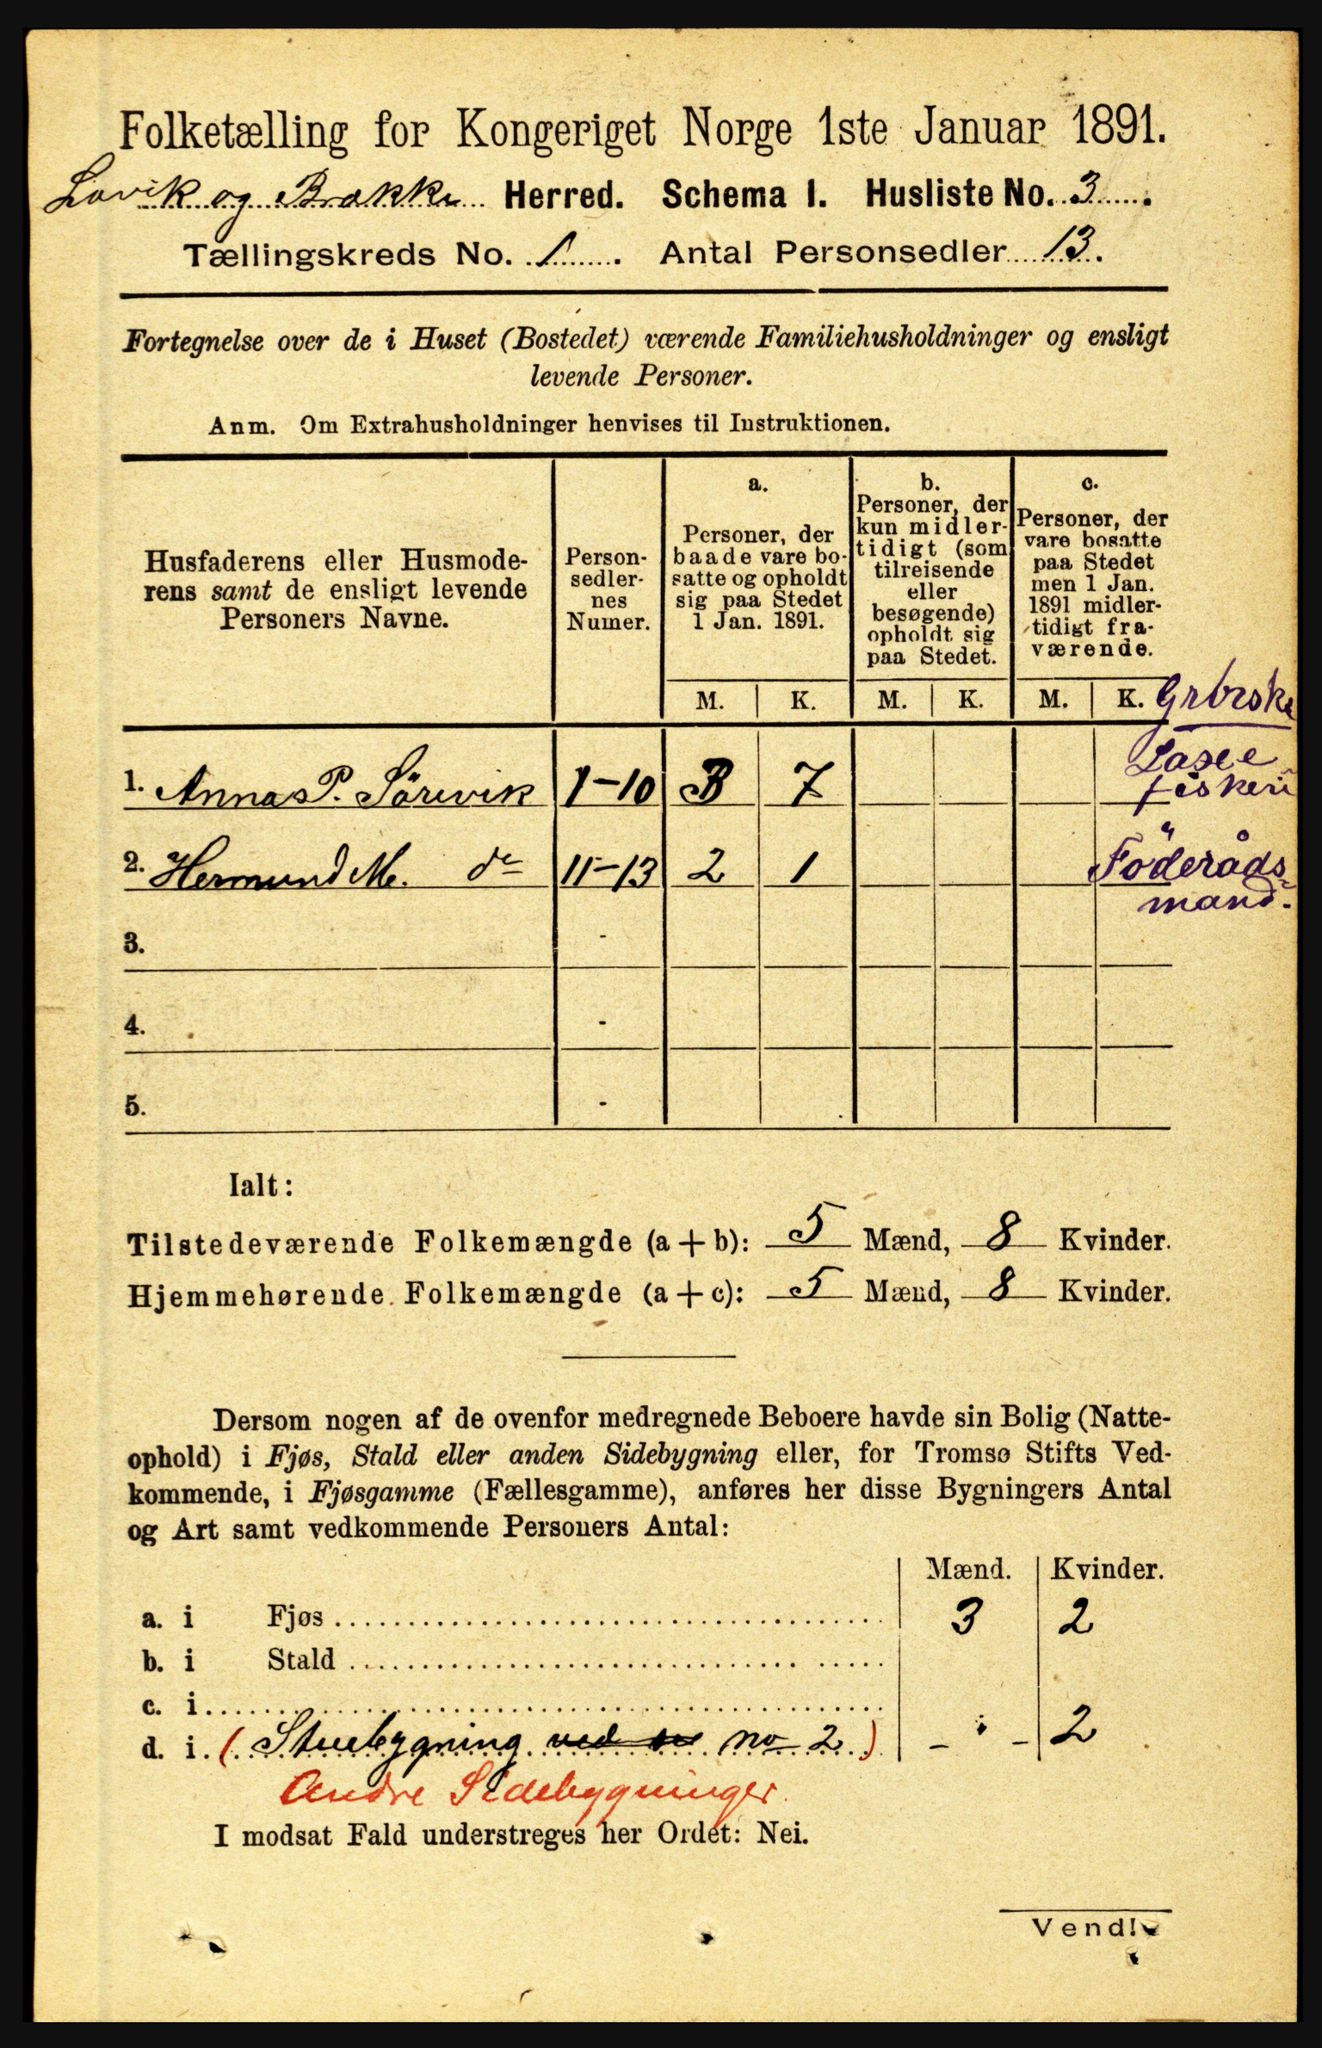 Folketælling for Kongeriget Norge 1ste Januar 1891.
Lavik og Brekke Herred. Schema I. Husliste No. 3.
Tællingskreds No. 1. Antal Personsedler 13.
Fortegnelse over de i Huset (Bostedet) værende Familiehusholdninger og ensligt
levende Personer.
Anm. Om Extrahusholdninger henvises til Instruktionen.
Husfaderens eller Husmode-
rens samt de ensligt levende
Personers Navne.
Person-
sedler-
nes
Numer.
a.
Personer, der
baade vare bo-
satte og opholdt
sig paa Stedet
1 Jan. 1891.
b.
Personer, der
kun midler-
tidigt (som
tilreisende
eller
besøgende)
opholdt sig
paa Stedet.
c.
Personer, der
vare bosatte
paa Stedet
men 1 Jan.
1891 midler-
tidigt fra-
værende.
M. K. M. K. M. K. Grbrske
1. Anna P. Sörevik 1-10 3 7
fiskeri
2. Hermund M. do 11-13 2 1 Föderåds-
mand.
3. -
4. -
5. -
Ialt:
Tilstedeværende Folkemængde (a + b): 5 Mænd, 8 Kvinder.
Hjemmehørende Folkemængde (a + c): 5 Mænd, 8 Kvinder.
Dersom nogen af de ovenfor medregnede Beboere havde sin Bolig (Natte-
ophold) i Fjøs, Stald eller anden Sidebygning eller, for Tromsø Stifts Ved-
kommende, i Fjøsgamme (Fællesgamme), anføres her disse Bygningers Antal
og Art samt vedkommende Personers Antal:
Mænd. Kvinder.
a. i Fjøs 3 2
b. i Stald
c. i
d. i (Stuebygning ved no 2) - - 2
Andre Sidebygninger.
I modsat Fald understreges her Ordet: Nei.
Vend!